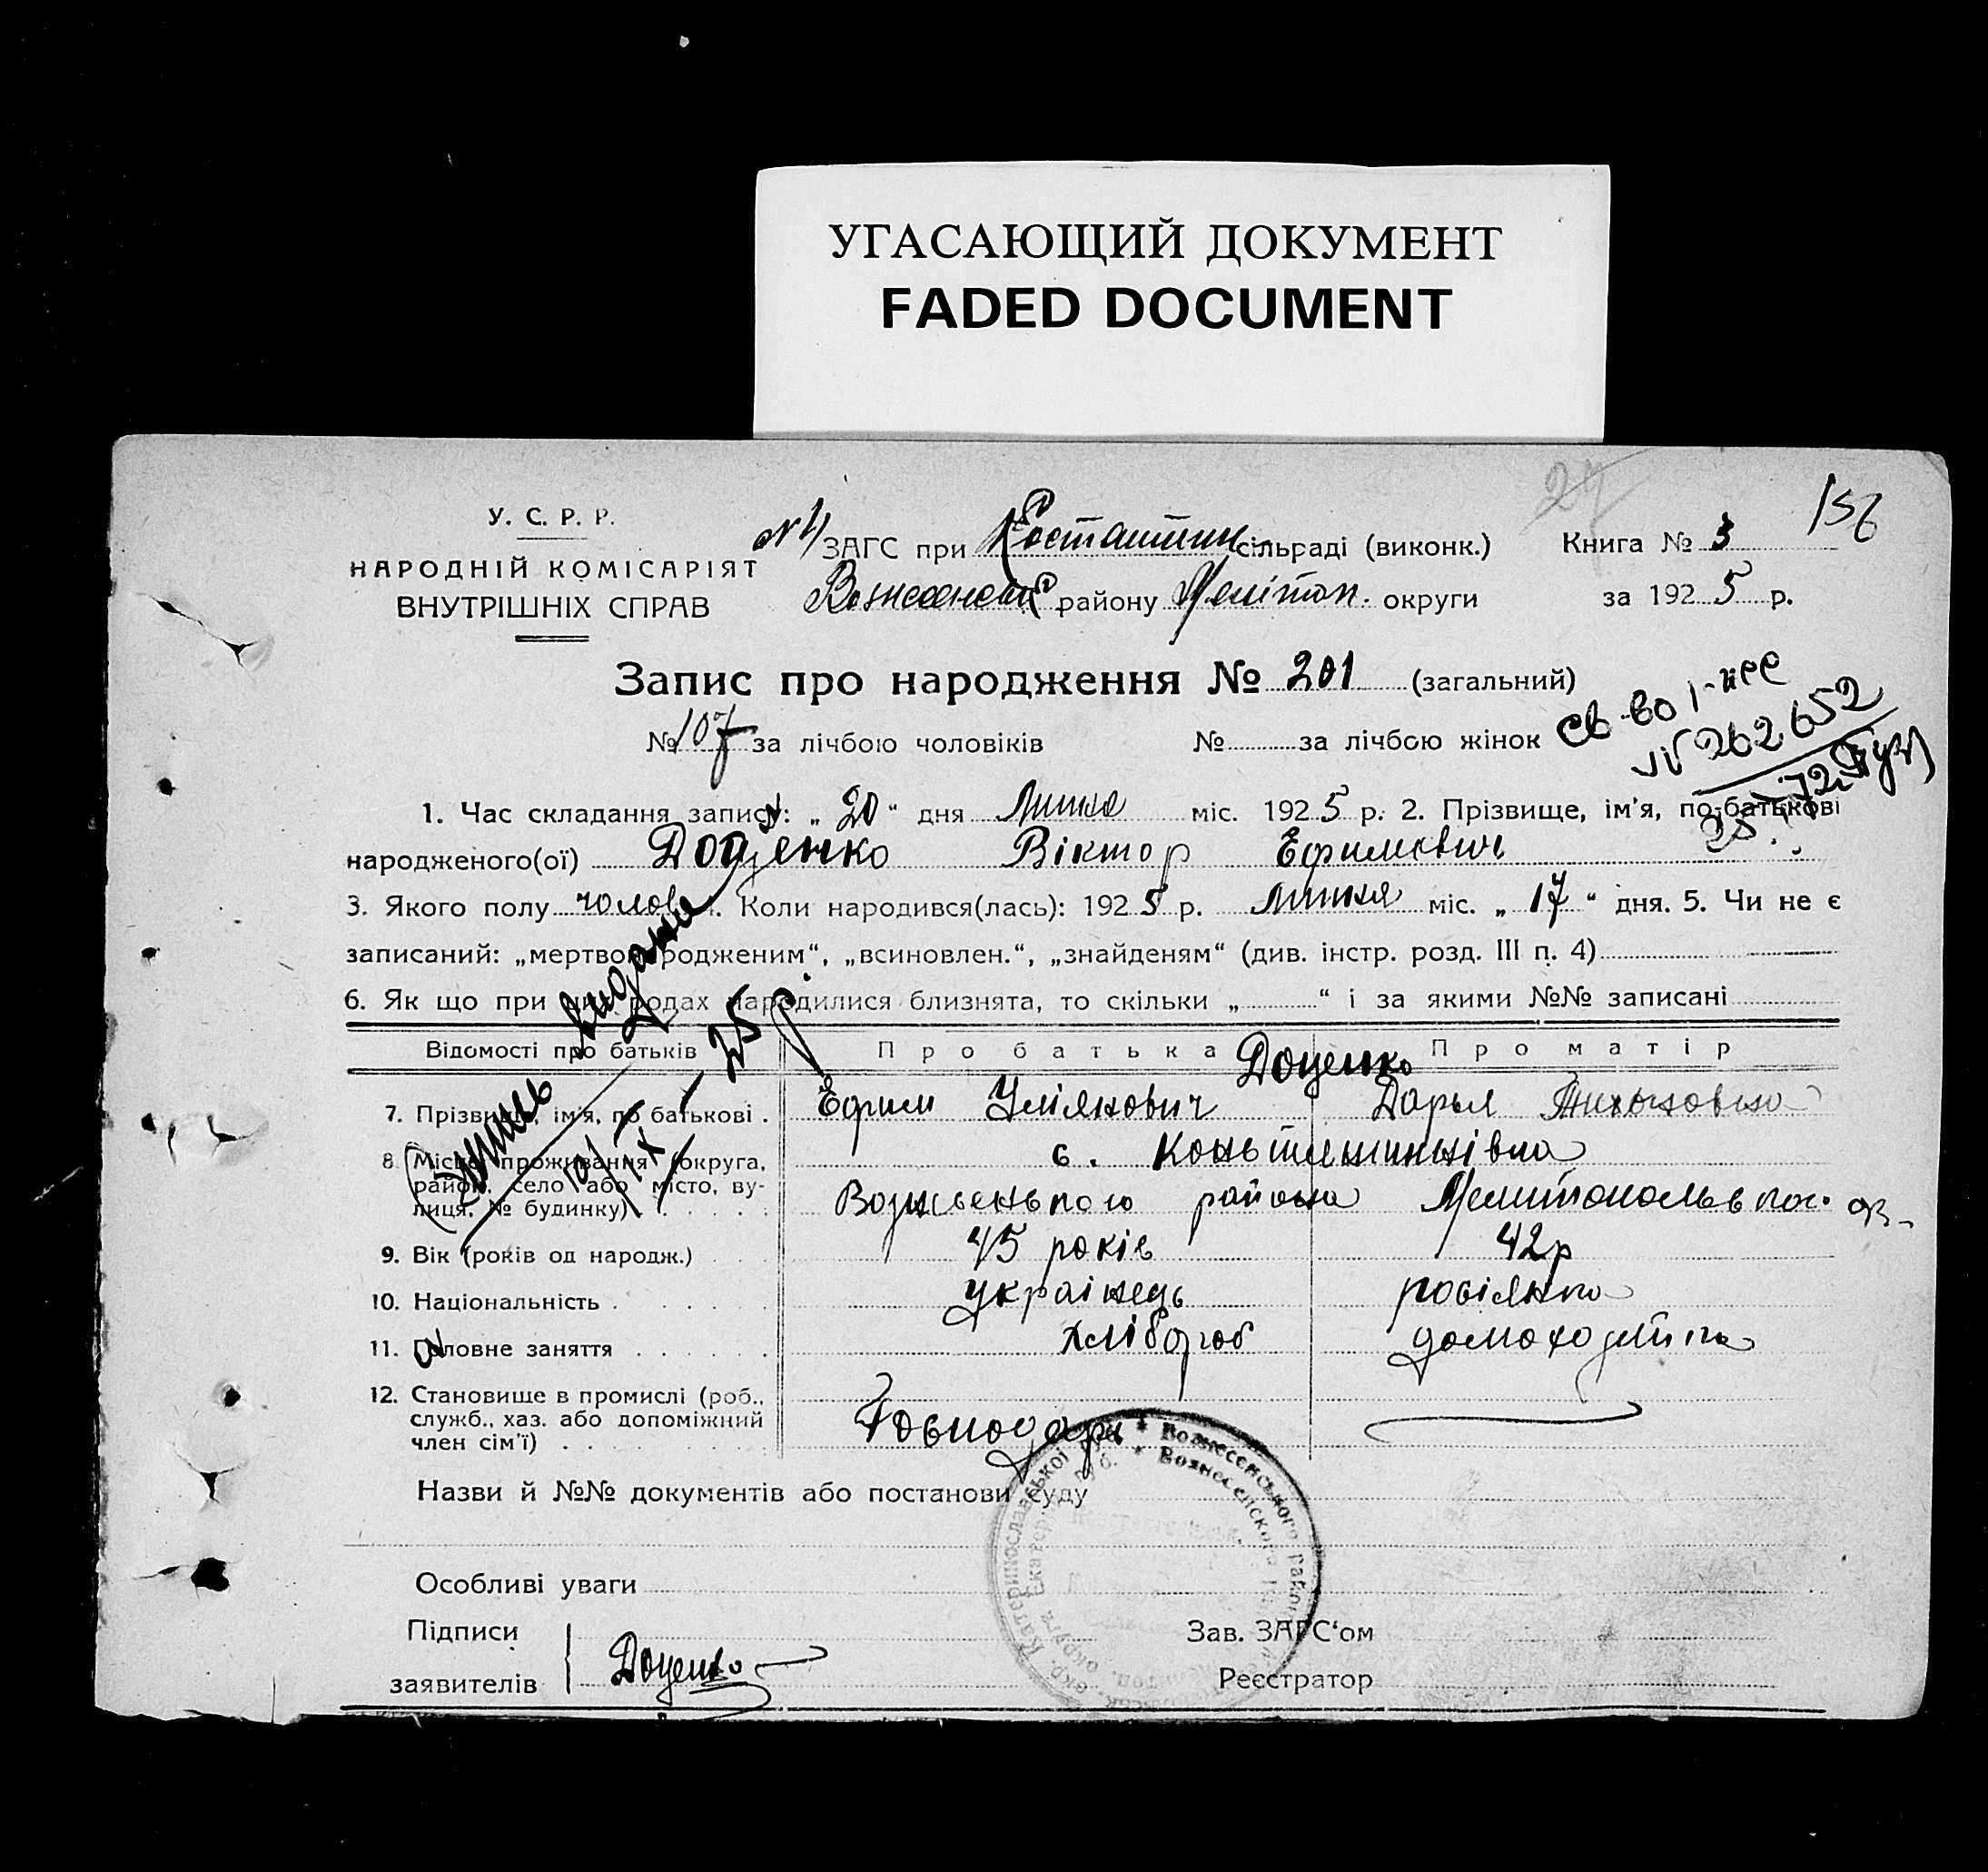 УГАСАЮЩИЙ ДОКУМЕНТ
FADED DOCUMENT
27
156
У. С. Р. Р.
НАРОДНІЙ КОМІСАРІЯТ
ВНУТРІШНІХ СПРАВ
ЗАГС при Костантин сільраді (виконк.)
району Мелітоп. округи
Книга № 3
за 1925 р.
Запис про народження № 201 (загальний)
№ 107 за лічбою чоловіків № за лічбою жінок
№ 262652
1. Час складання запису: „ 20 “ дня Липня міс. 1925 р. 2. Прізвище, ім'я, по-батькові
народженого(ої) Доценко Віктор Ефимович
3. Якого полу чолов 4. Коли народився(лась): 1925 р. Липня міс. „ 17 “ дня. 5. Чи не є
записаний: „мертвонародженим“, „всиновлен.“, „знайденям“ (див. інстр. розд. III п. 4)
6. Як що при цих родах народилися близнята, то скільки „ “ і за якими №№ записані
Відомості про батьків Про батька Про матір
Доценко
7. Прізвище, ім'я, по батькові . Ефим Улянович Дарья Тихоновна
8. Місце проживання (округа, район, село або місто, вулиця, № будинку) с. Константинівка
района
9. Вік (років од народж.) 45 років 42р
10. Національність українець росіянка
11. Головне заняття хлібороб
12. Становище в промислі (роб., служб., хаз. або допоміжний член сім'ї) Господарь
Назви й №№ документів або постанови суду
Особливі уваги
Підписи
заявителів Доценко
Зав. ЗАГС‘ом
Реєстратор
Витяг видано
10/IX - 25 р.
Вознесенського район
Вознесенского
Катеринославської